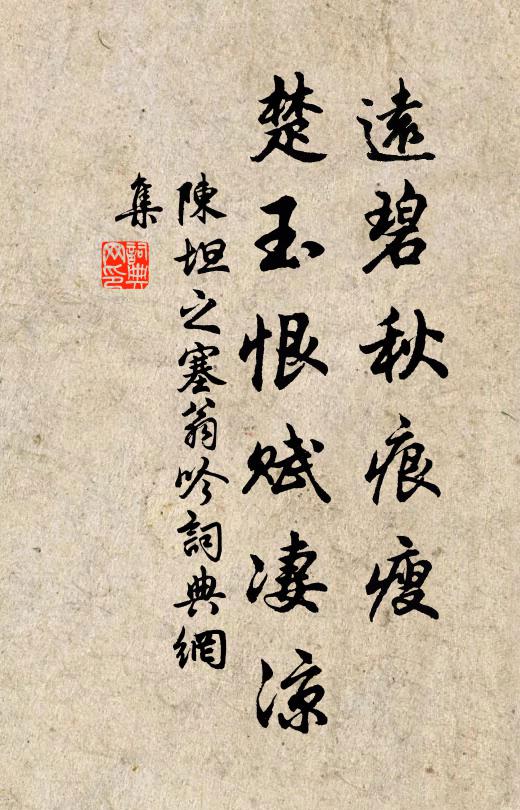 遠碧秋痕瘦
楚玉恨賦淒涼
陳坦之塞翁吟詞典網
集
詞典
网印